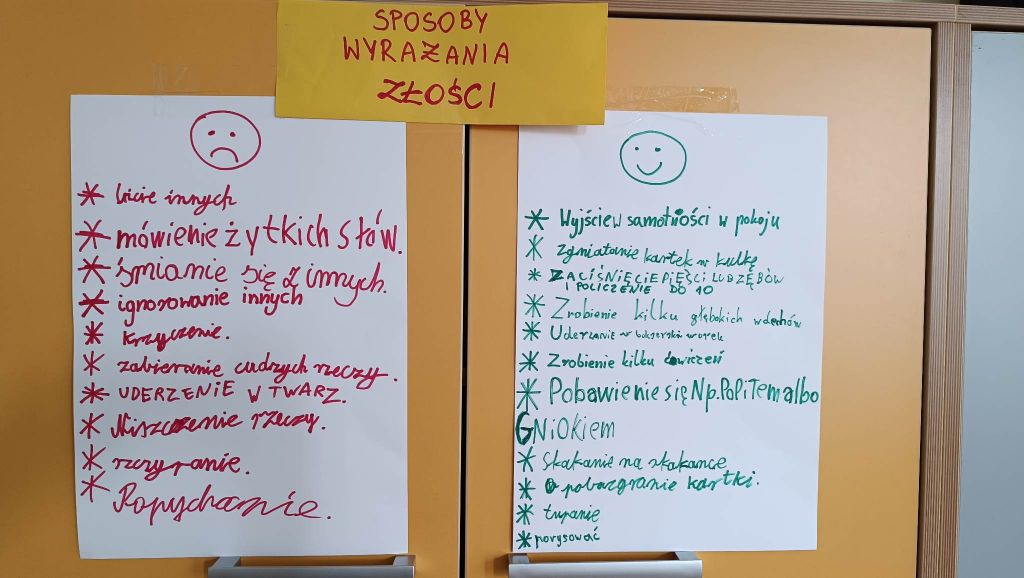 SPOSOBY
WYRAŻANIA
ZŁOŚCI
* bicie innych
* mówienie żytkich słów.
* śmianie się z innych.
* ignorowanie innych
* krzyczenie.
* zabieranie cudzych rzeczy.
* UDERZENIE W TWARZ.
* Niszczenie rzeczy.
* szczypanie.
* Popychanie.
* Wyjściew samotności w pokoju
* Zgniatanie kartek w kulkę
* ZACIŚNIĘCIE PIĘŚCI LUB ZĘBÓW
I POLICZENIE DO 10
* Zrobienie kilku głębokich wdechów
* Uderzanie w bokserski worek
* Zrobienie kilku ćwiczeń
* Pobawienie się Np. PopiTem albo
GNiOKiem
* Skakanie na skakance
* pobazgranie kartki.
* tupanie
* porysować